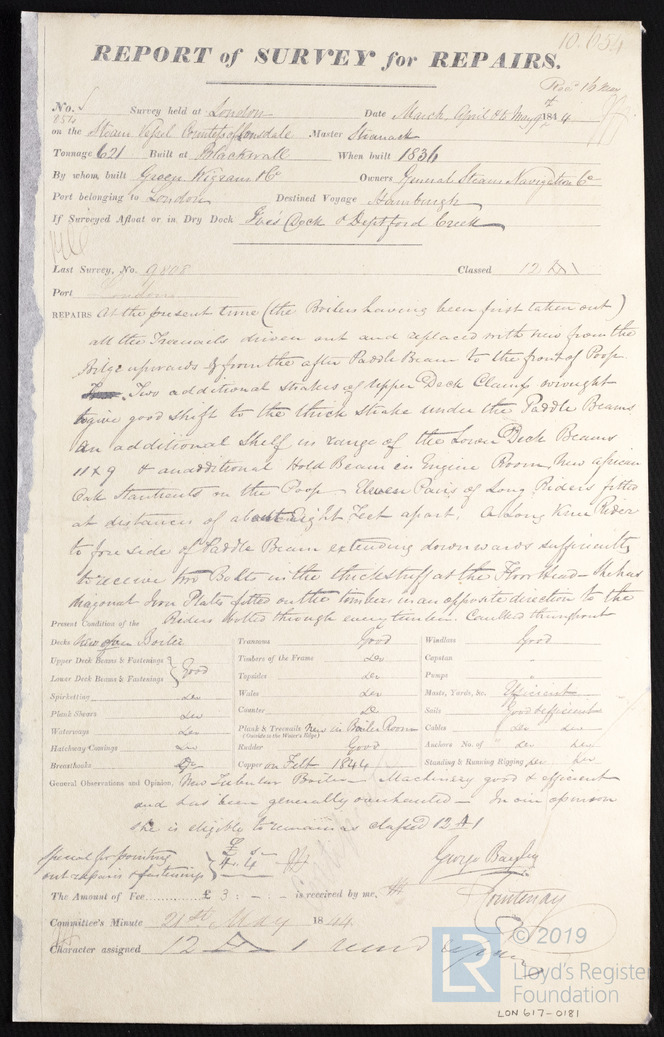 10.654
REPORT of SURVEY for REPAIRS.
No. 854 Survey held at London Date March April & May 9th 1844
on the Steam Vessel Countess of Lonsdale Master Stranack
Tonnage 621 Built at Blackwall When built 1836
By whom built Green Wigrams & Co Owners General Steam Navigation Co
Port belonging to London Destined Voyage Hamburgh
If Surveyed Afloat or in Dry Dock Dock & Deptford Creek
Last Survey, No. 9808 Classed 12 A 1
Port London
REPAIRS At the present time (the Boilers having been first taken out)
all the Treenails driven out and replaced with new from the
Bilge upwards & from the after Paddle Beam to the front of Poop.
Two additional strakes of Upper Deck Clamp wrought
to give good shift to the thick strake under the Paddle Beams,
an additional Shelf in range of the Lower Deck Beams
11 x 9 & an additional Hold Beam in Engine Room, New African
Oak Stantients on the Poop - Eleven Pairs of Long Riders fitted
at distances of about Eight Feet apart. A Long Knee Rider
to fore side of Paddle Beam extending downwards sufficiently
to receive two Bolts in the thickstuff at the Floor Head - She has
diagonal Iron Plates fitted on the timbers in an opposite direction to the
Present Condition of the Riders bolted through every timber. Caulked throughout
Decks New of Boiler Transoms Good Windlass Good
Upper Deck Beams & Fastenings } Good Timbers of the Frame do Capstan
Lower Deck Beams & Fastenings Topsides do Pumps
Spirketting do Wales do Masts, Yards, &c. Efficient
Plank Shears do Counter do Sails Good & efficient
Waterways do Plank & Treenails New in Boiler Room Cables do do
(Outside to the Water's Edge)
Hatchway Comings do Rudder Good Anchors No. of do do
Breasthooks do Copper on Felt 1844 Standing & Running Rigging do do
General Observations and Opinion, New Tubular Boiler - Machinery good & efficient
and has been generally overhauled - In our opinion
she is eligible to remain as classed 12 A 1
Special for pointing £ s
out repairs & fastenings } 4 . 4 . - George Bayley
The Amount of Fee £ 3 : - . - is received by me, Courtenay
Committee's Minute 21st May 1844
Character assigned 12 A 1
© 2019
LR
Lloyd's Register
Foundation
LON 617-0181